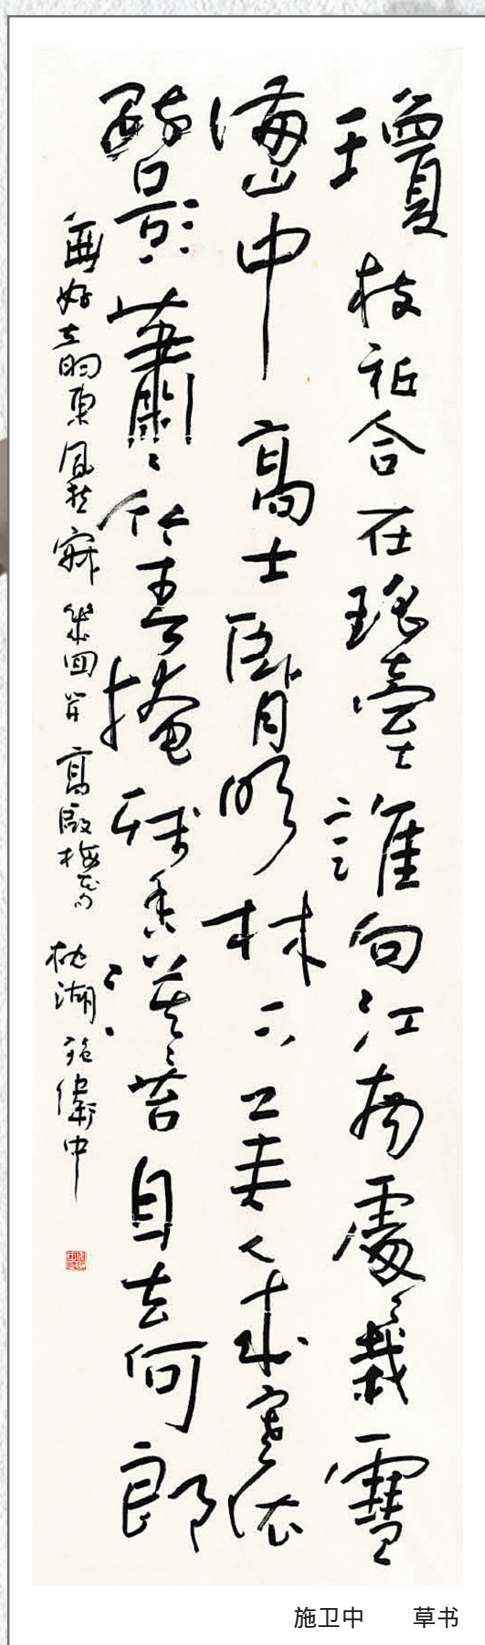 瓊枝祗合在瑤臺誰向江南處〻栽雪
滿山中高士臥月明林下美人來寒依
疏影蕭〻竹春掩殘香漠〻苔自去何郎
無好韵東風愁寂幾回開 高啟梅花 枕湖施衛中
施卫中 草书